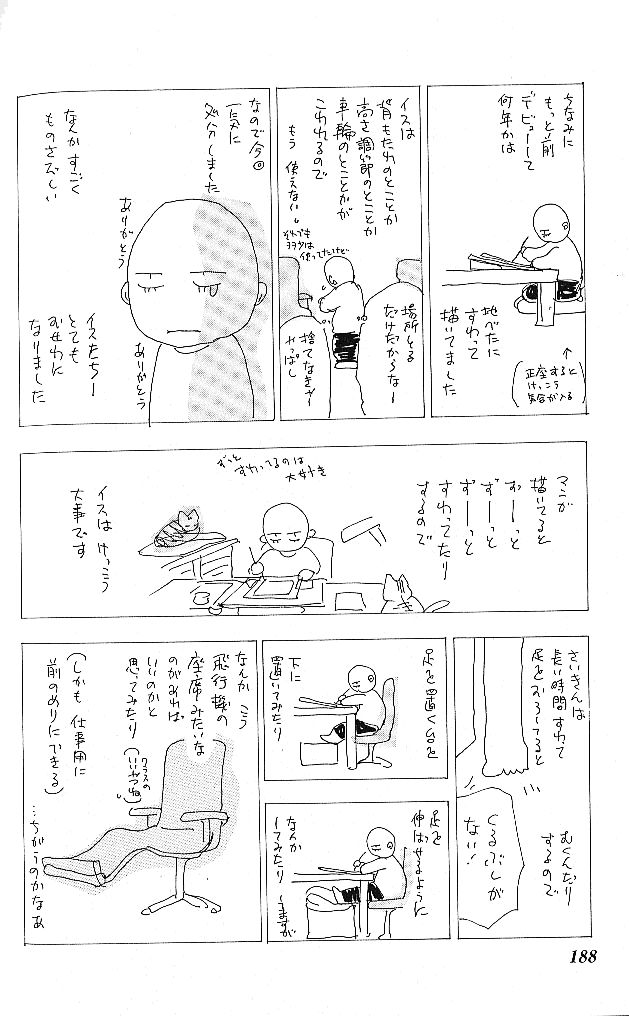 ちなみに
もっと前
デビューして
何年かは
地べたに
すわって
描いてました
↑
(正座すると
けっこう
気合が入る)
イスは
背もたれのとことか
高さ調節のとことか
車輪のとことかが
こわれるので
もう 使えない。
それでも
ヨヨかは
使ってたけど
場所とる
だけだからなー
やっぱし
捨てなきゃー
なので今回
一気に
処分しました
なんか すごく
ものさびしい
ありがとう
ありがとう
イスたちー
とても
おせわに
なりました
マンガ
描いてると
ずーっと
ずーっと
ずーっと
すわってたり
するので
ずっと
すわってるのは
大好き
イスは けっこう
大事です
さいきんは
長い時間 すわて
足をおろしてると
むくんだり
するので
くるぶしが
ない!
足を置く台を
下に
置いてみたり
足を
伸ばせるように
なんか
してみたり しますが
なんか こう
飛行機の
座席みたいな
のがあれば
いいのかと
思ってみたり
(クラスの
いいやつね)
(しかも 仕事用に
前のめりにできる)
…ちがうのかなあ
188